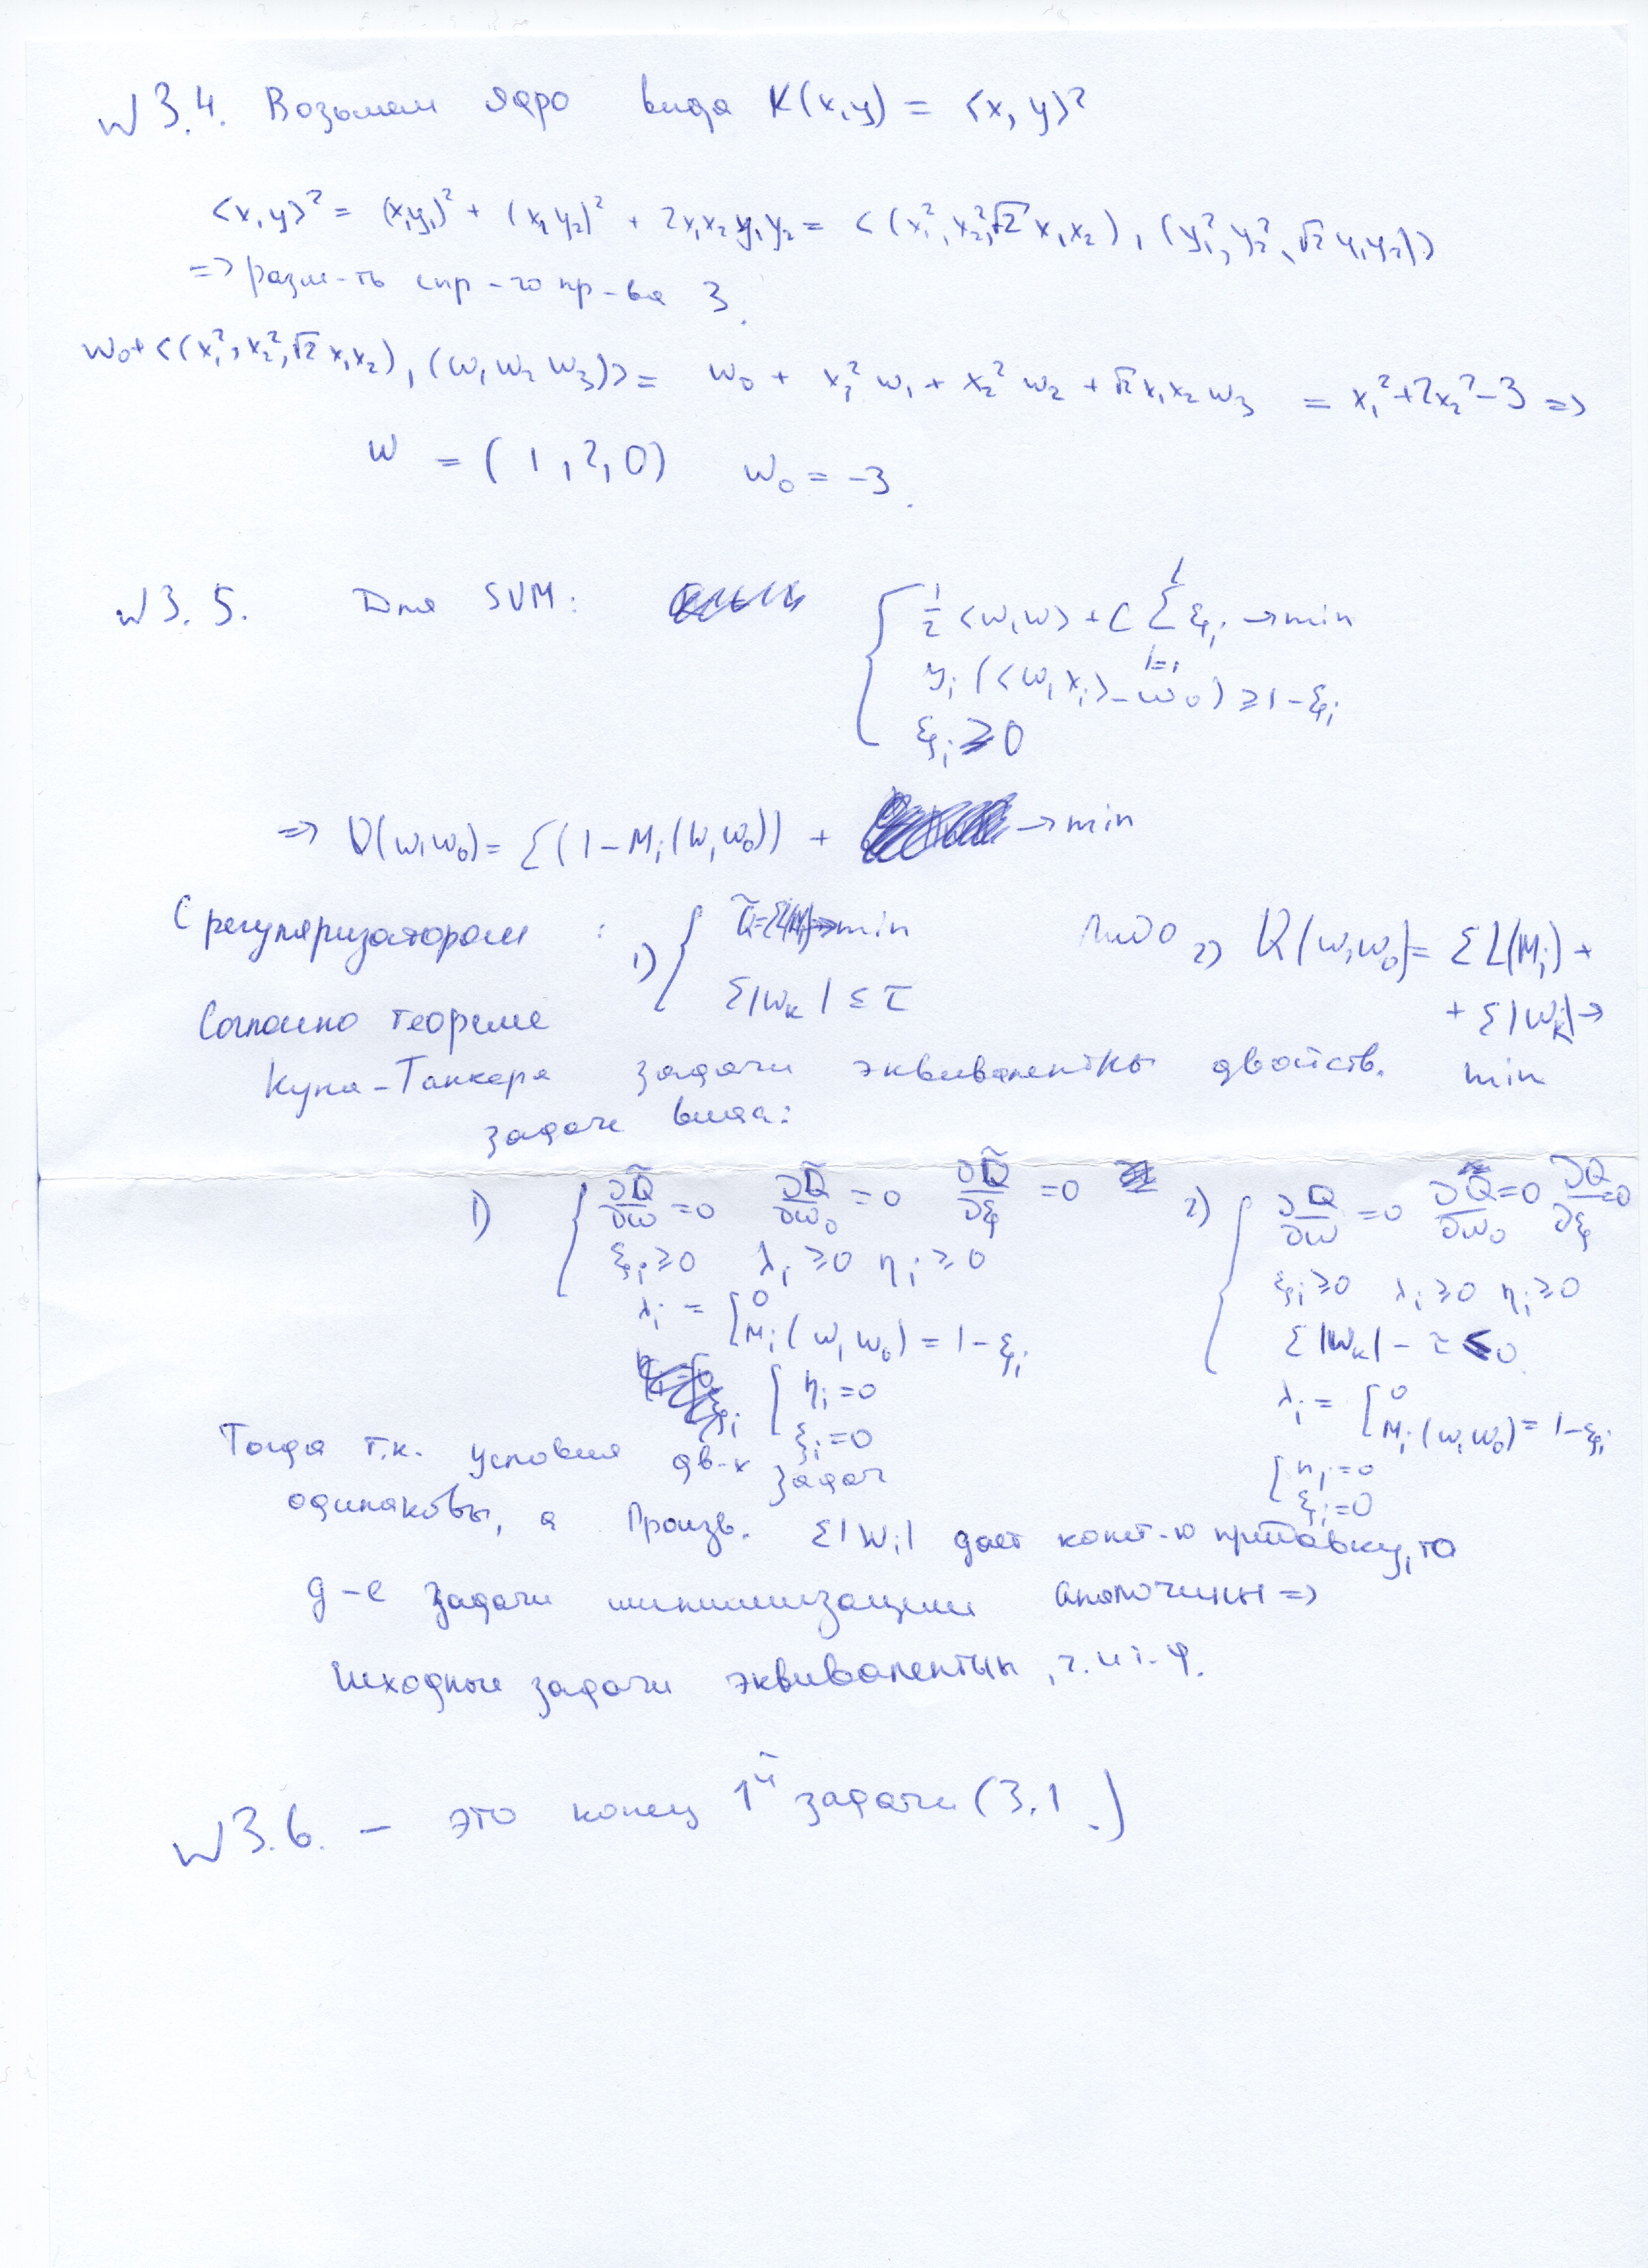 №3.4. Возьмем ядро вида K(x,y) = <x, y>²
<x,y>² = (x₁y₁)² + (x₁y₂)² + 2x₁x₂y₁y₂ = <(x₁², x₂², √2 x₁x₂), (y₁², y₂², √2 y₁y₂)>
=> разм-ть спр-го пр-ва 3.
w₀+<(x₁², x₂², √2 x₁x₂), (w₁ w₂ w₃)> = w₀ + x₁² w₁ + x₂² w₂ + √2 x₁x₂ w₃ = x₁²+2x₂²-3 =>
w = (1, 2, 0) w₀ = -3.
№3.5. Для SVM:
½ <w,w> + C Σ ξᵢ → min
yᵢ (<w, xᵢ> - w₀) ≥ 1-ξᵢ
ξᵢ ≥ 0
=> Q(w,w₀) = Σ(1-Mᵢ(w,w₀)) + → min
С регуляризатором : 1) → min либо 2) Q(w,w₀) = ΣL(Mᵢ) +
Σ|wₖ| ≤ τ + Σ|wₖ| →
Согласно теореме
Куна-Таккера задачи эквивалентны двойств. min
задаче вида:
1) ∂Q̃/∂w = 0 ∂Q̃/∂w₀ = 0 ∂Q̃/∂ξ = 0 2) ∂Q/∂w = 0 ∂Q/∂w₀ = 0 ∂Q/∂ξ = 0
ξᵢ ≥ 0 λᵢ ≥ 0 ηᵢ ≥ 0 ξᵢ ≥ 0 λᵢ ≥ 0 ηᵢ ≥ 0
λᵢ = [ 0 Σ|wₖ| - τ ≤ 0
Mᵢ(w,w₀) = 1-ξᵢ λᵢ = [ 0
[ ηᵢ = 0 Mᵢ(w,w₀) = 1-ξᵢ
ξᵢ = 0 [ ηᵢ = 0
ξᵢ = 0
Тогда т.к. условия дв-х задач
одинаковы, а произв. Σ|wᵢ| дает конст-ю прибавку, то
д-е задачи минимизации аналогичны =>
Исходные задачи эквивалентны, ч.и т.д.
№3.6. - это конец 1й задачи (3.1.)